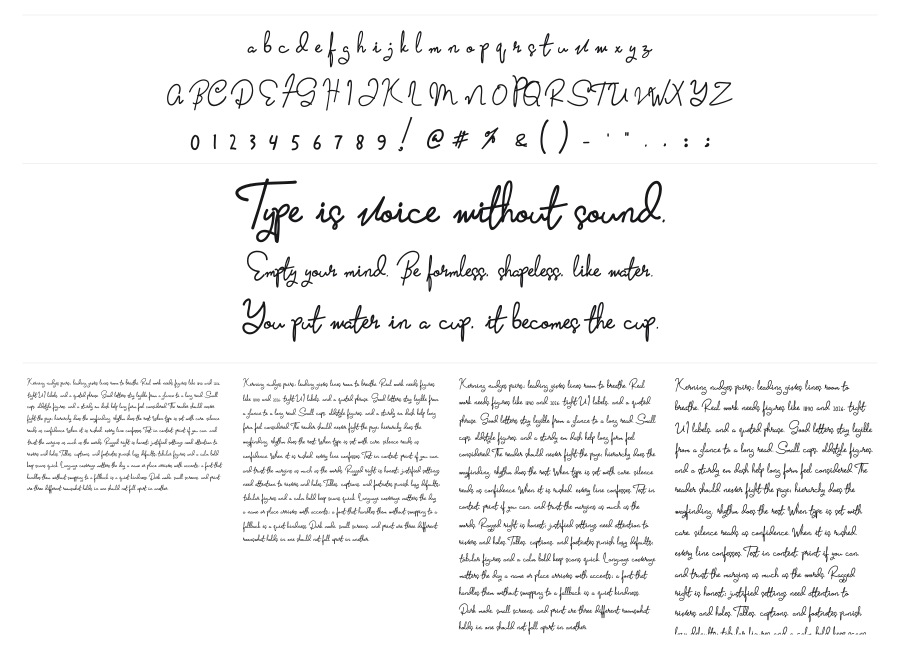 a b c d e f g h i j k l m n o p q r s t u v w x y z
A B C D E F G H I J K L M N O P Q R S T U V W X Y Z
0 1 2 3 4 5 6 7 8 9 ! @ # % & ( ) - ' " . , : ;
Type is voice without sound.
Empty your mind. Be formless, shapeless, like water.
You put water in a cup, it becomes the cup.
Kerning nudges pairs; leading gives lines room to breathe. Real work needs figures like 1890 and 2026,
tight UI labels, and a quoted phrase. Good letters stay legible from a glance to a long read. Small
caps, oldstyle figures, and a sturdy en dash help long form feel considered. The reader should never
fight the page; hierarchy does the wayfinding, rhythm does the rest. When type is set with care, silence
reads as confidence. When it is rushed, every line confesses. Test in context, print if you can, and
trust the margins as much as the words. Ragged right is honest; justified settings need attention to
rivers and holes. Tables, captions, and footnotes punish lazy defaults; tabular figures and a calm bold
keep scans quick. Language coverage matters the day a name or place arrives with accents; a font that
handles them without swapping to a fallback is a quiet kindness. Dark mode, small screens, and print
are three different rooms; what holds in one should not fall apart in another.
Kerning nudges pairs; leading gives lines room to breathe. Real work needs figures
like 1890 and 2026, tight UI labels, and a quoted phrase. Good letters stay legible from
a glance to a long read. Small caps, oldstyle figures, and a sturdy en dash help long
form feel considered. The reader should never fight the page; hierarchy does the
wayfinding, rhythm does the rest. When type is set with care, silence reads as
confidence. When it is rushed, every line confesses. Test in context, print if you can,
and trust the margins as much as the words. Ragged right is honest; justified settings
need attention to rivers and holes. Tables, captions, and footnotes punish lazy defaults;
tabular figures and a calm bold keep scans quick. Language coverage matters the day
a name or place arrives with accents; a font that handles them without swapping to a
fallback is a quiet kindness. Dark mode, small screens, and print are three different
rooms; what holds in one should not fall apart in another.
Kerning nudges pairs; leading gives lines room to breathe. Real
work needs figures like 1890 and 2026, tight UI labels, and a quoted
phrase. Good letters stay legible from a glance to a long read. Small
caps, oldstyle figures, and a sturdy en dash help long form feel
considered. The reader should never fight the page; hierarchy does the
wayfinding, rhythm does the rest. When type is set with care, silence
reads as confidence. When it is rushed, every line confesses. Test in
context, print if you can, and trust the margins as much as the
words. Ragged right is honest; justified settings need attention to
rivers and holes. Tables, captions, and footnotes punish lazy defaults;
tabular figures and a calm bold keep scans quick. Language coverage
matters the day a name or place arrives with accents; a font that
handles them without swapping to a fallback is a quiet kindness.
Dark mode, small screens, and print are three different rooms; what
holds in one should not fall apart in another.
Kerning nudges pairs; leading gives lines room to
breathe. Real work needs figures like 1890 and 2026, tight
UI labels, and a quoted phrase. Good letters stay legible
from a glance to a long read. Small caps, oldstyle figures,
and a sturdy en dash help long form feel considered. The
reader should never fight the page; hierarchy does the
wayfinding, rhythm does the rest. When type is set with
care, silence reads as confidence. When it is rushed,
every line confesses. Test in context, print if you can,
and trust the margins as much as the words. Ragged
right is honest; justified settings need attention to
rivers and holes. Tables, captions, and footnotes punish
lazy defaults; tabular figures and a calm bold keep scans